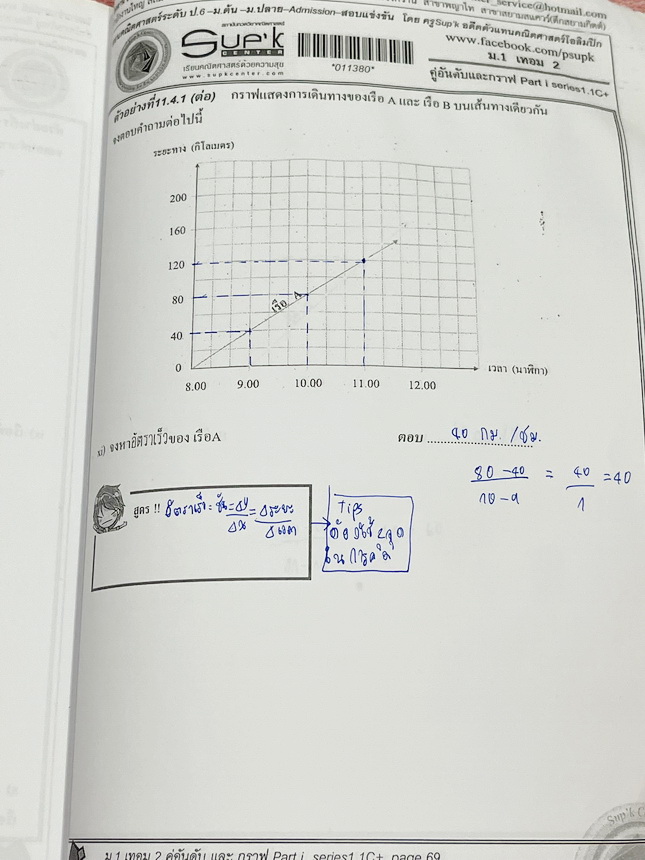 สาขาพญาไท สาขาสยามสแควร์(ตึกสยามกิตต์)
_service@hotmail.com
คณิตศาสตร์ระดับ ป.6-ม.ต้น-ม.ปลาย-Admission-สอบแข่งขัน โดย ครูSup'k อดีตตัวแทนคณิตศาสตร์โอลิมปิก
www.facebook.com/psupk
สถาบันกวดวิชาคณิตศาสตร์
Sup'k
CENTER
เรียนคณิตศาสตร์ด้วยความสุข
www.supkcenter.com
*011380*
ม.1 เทอม 2
คู่อันดับและกราฟ Part i series1.1C+
ตัวอย่างที่11.4.1 (ต่อ) กราฟแสดงการเดินทางของเรือ A และ เรือ B บนเส้นทางเดียวกัน
จงตอบคำถามต่อไปนี้
ระยะทาง (กิโลเมตร)
200
160
120
80
40
0
เรือ A
8.00 9.00 10.00 11.00 12.00
เวลา (นาฬิกา)
xi) จงหาอัตราเร็วของ เรือA
ตอบ 40 กม. /ชม.
80 - 40 / 10 - 9 = 40 / 1 = 40
สูตร !! อัตราเร็ว = ชัน = Δy / Δx = Δระยะ / Δเวลา
Tips
ต้องใช้ 2จุด
ในการคิด
ม.1 เทอม 2 คู่อันดับ และ กราฟ Part i series1.1C+ page 69